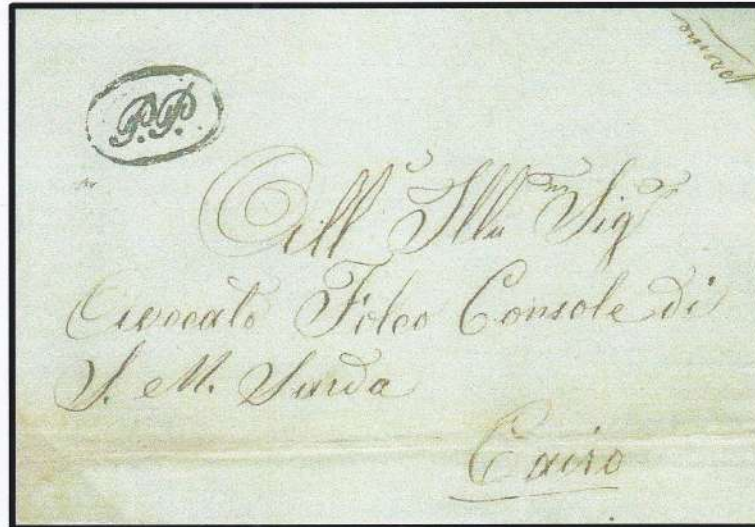 P.P.
All' Illmo Sigr
Avocato Console di
S. M. Sarda
Cairo